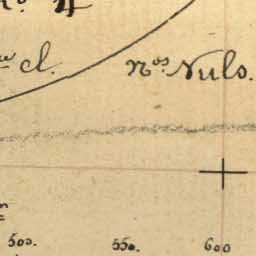 cl. Nos. Nuls.
500. 550. 600